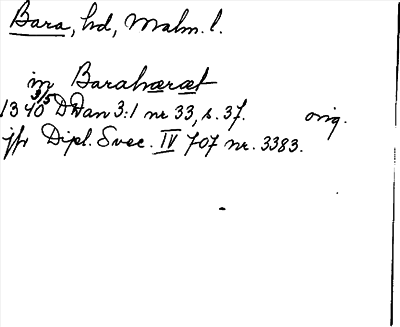 Bara, hd, Malm. l.
in Barahæræt
1340 3/5 DDan 3:1 nr 33, s. 37. orig.
jfr Dipl. Svec. IV 707 nr. 3383.